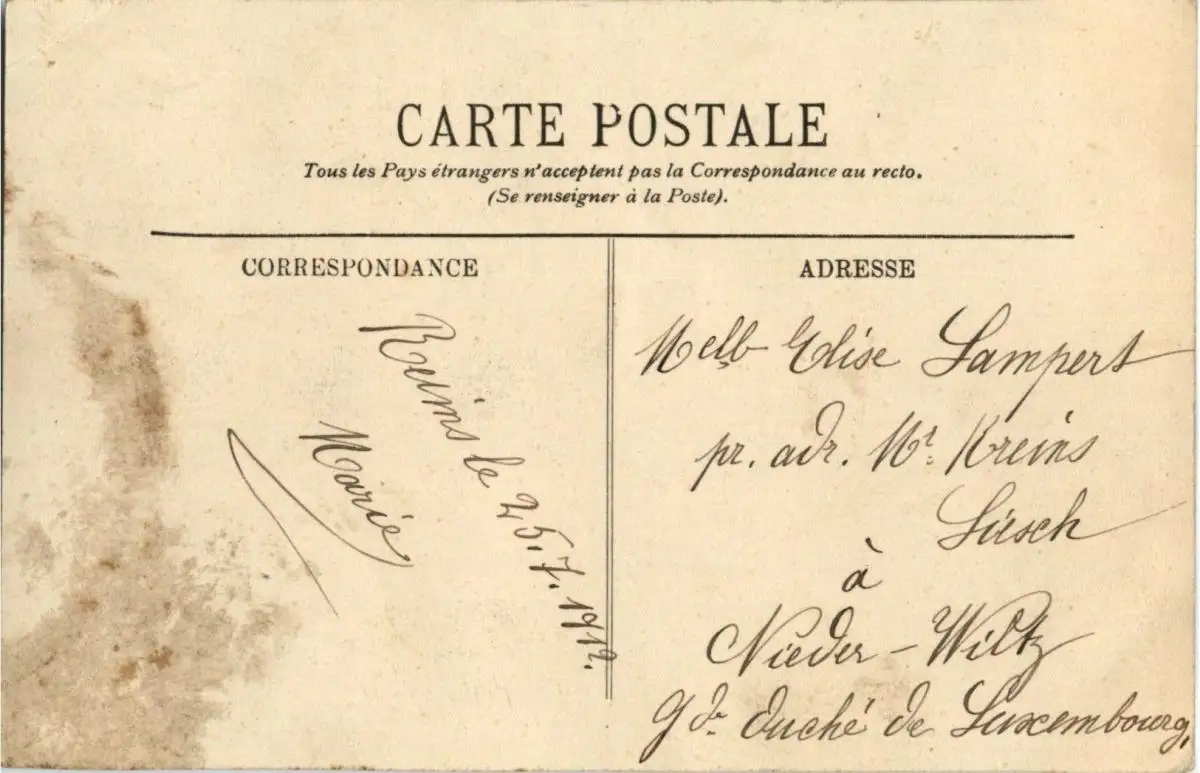 CARTE POSTALE
Tous les Pays étrangers n'acceptent pas la Correspondance au recto.
(Se renseigner à la Poste).
CORRESPONDANCE
Reims le 25.7.1912.
Marie
ADRESSE
Melle Elise Lampert
pr. adr. Mr. Kreins
à
Nieder-Wiltz
Gd. duché de Luxembourg,